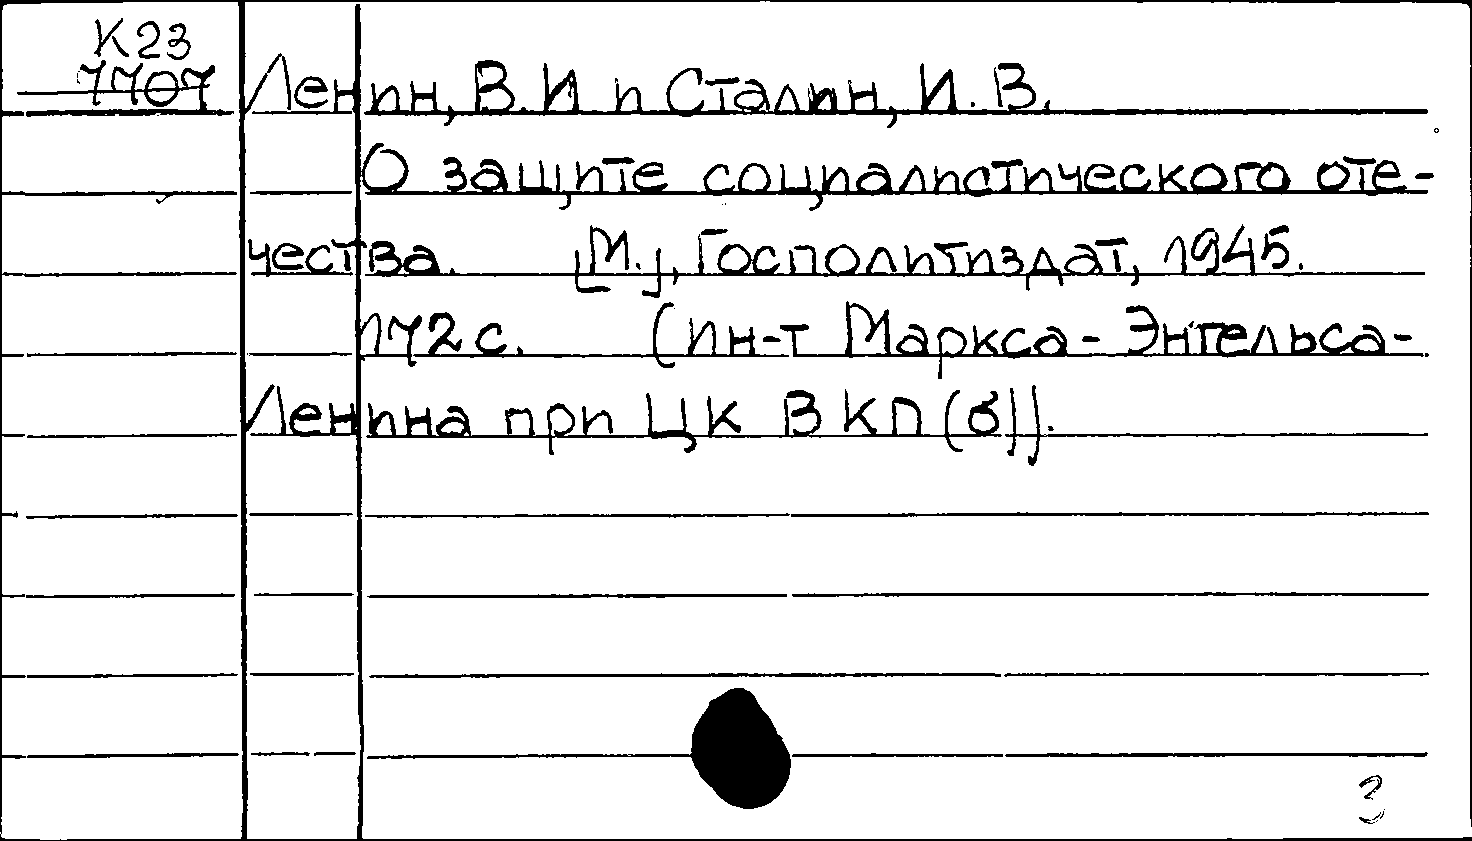 К23
7707
Ленин, В.И и Сталин, И.В.
О защите социалистического оте-
чества. [М.], Госполитиздат, 1945.
172 с. (Ин-т Маркса-Энгельса-
Ленина при ЦК ВКП(б)).
3